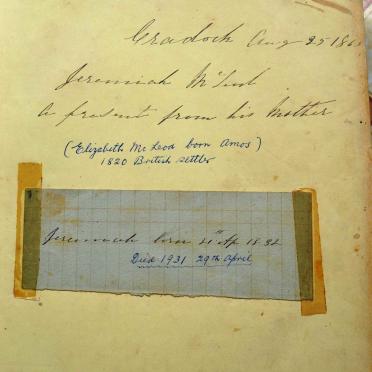 Cradock Aug 25 186
Jeremiah McLeod
A present from his Mother
(Elizabeth McLeod born Amos)
1820 British settler
Jeremiah born 21st Ap 18
Died 1931 29th April